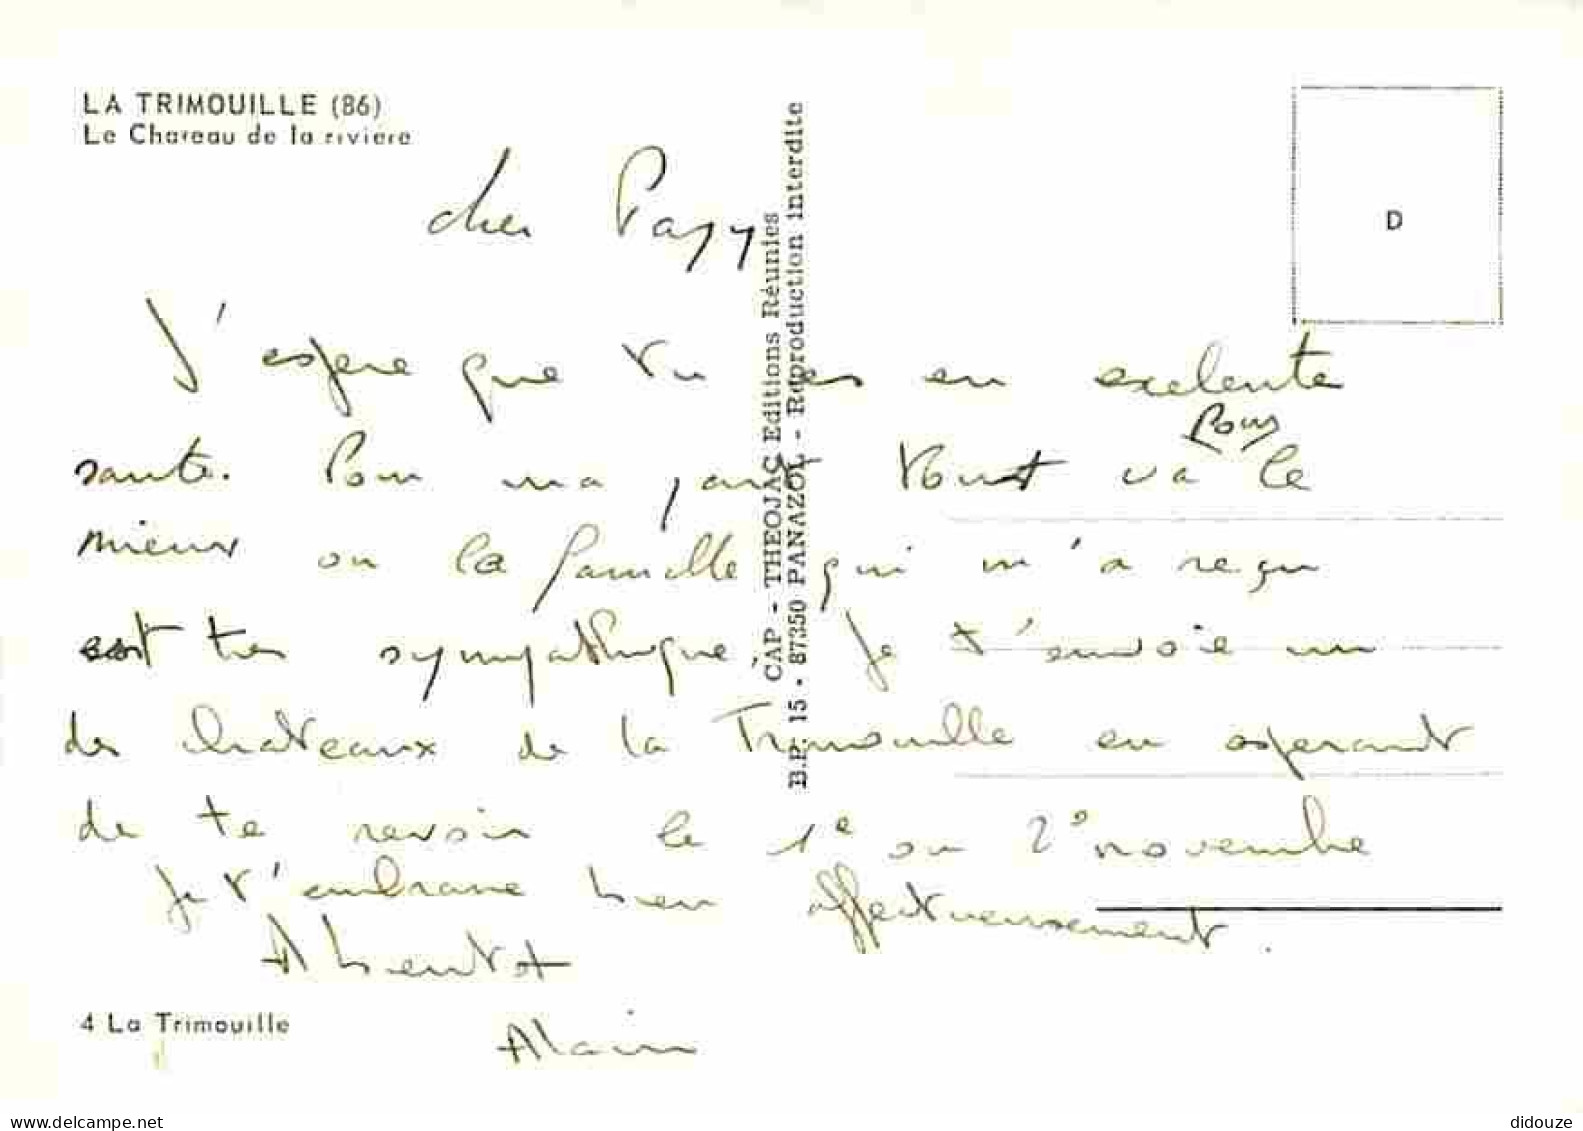 LA TRIMOUILLE (86)
Le Chateau de la rivière
D
cher Papy
J'espere que tu es en exelente
sante. Pour ma part tout va pour le
mieux ou la famille qui m'a reçu
est tres sympathique. Je t'envoie un
des chateaux de la Trimouille en esperant
de te revoir le 1e ou 2e novembre
Je t'embrasse bien affectueusement.
A bientot
Alain
4 La Trimouille
CAP - THEOJAC Editions Réunies
B.P. 15 - 87350 PANAZOL - Reproduction interdite
didouze